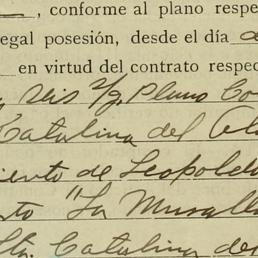 , conforme al plano respe
egal posesión, desde el día
en virtud del contrato respec
Plano Co
Catalina del
iento de Leopold
to "La Muralla
Sta. Catalina de